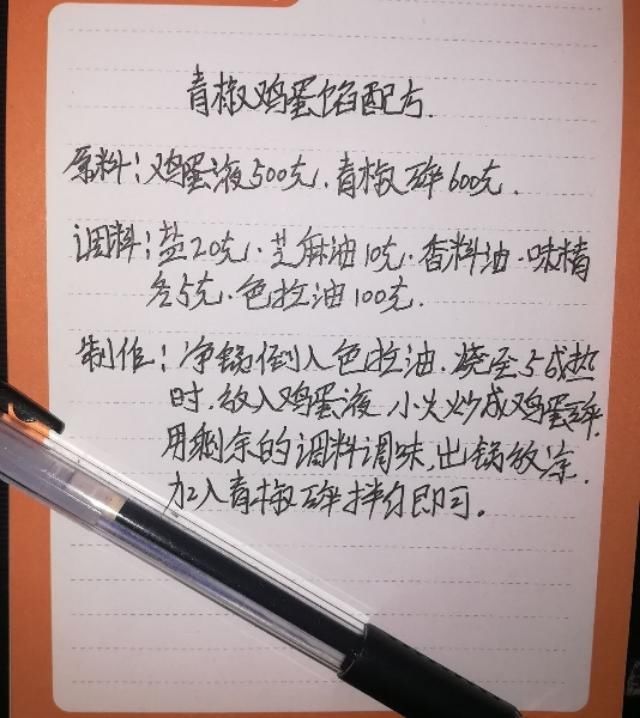 青椒鸡蛋馅配方.
原料:鸡蛋液500克.青椒碎600克.
调料:盐20克.芝麻油10克.香料油.味精
各5克.色拉油100克.
制作:净锅倒入色拉油.烧至5成热
时.放入鸡蛋液 小火炒成鸡蛋碎.
用剩余的调料调味,出锅放凉.
加入青椒碎拌匀即可。